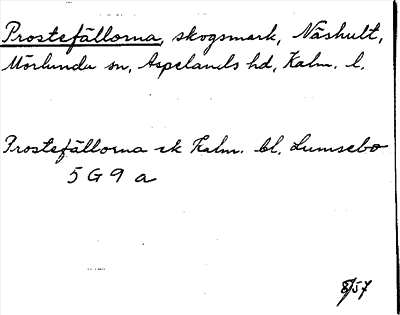 Prostefällorna, skogsmark, Näshult,
Mörlunda sn, Aspelands hd, Kalm. l.
Prostefällorna ek Kalm. bl. Lumsebo
5 G 9 a
8/57